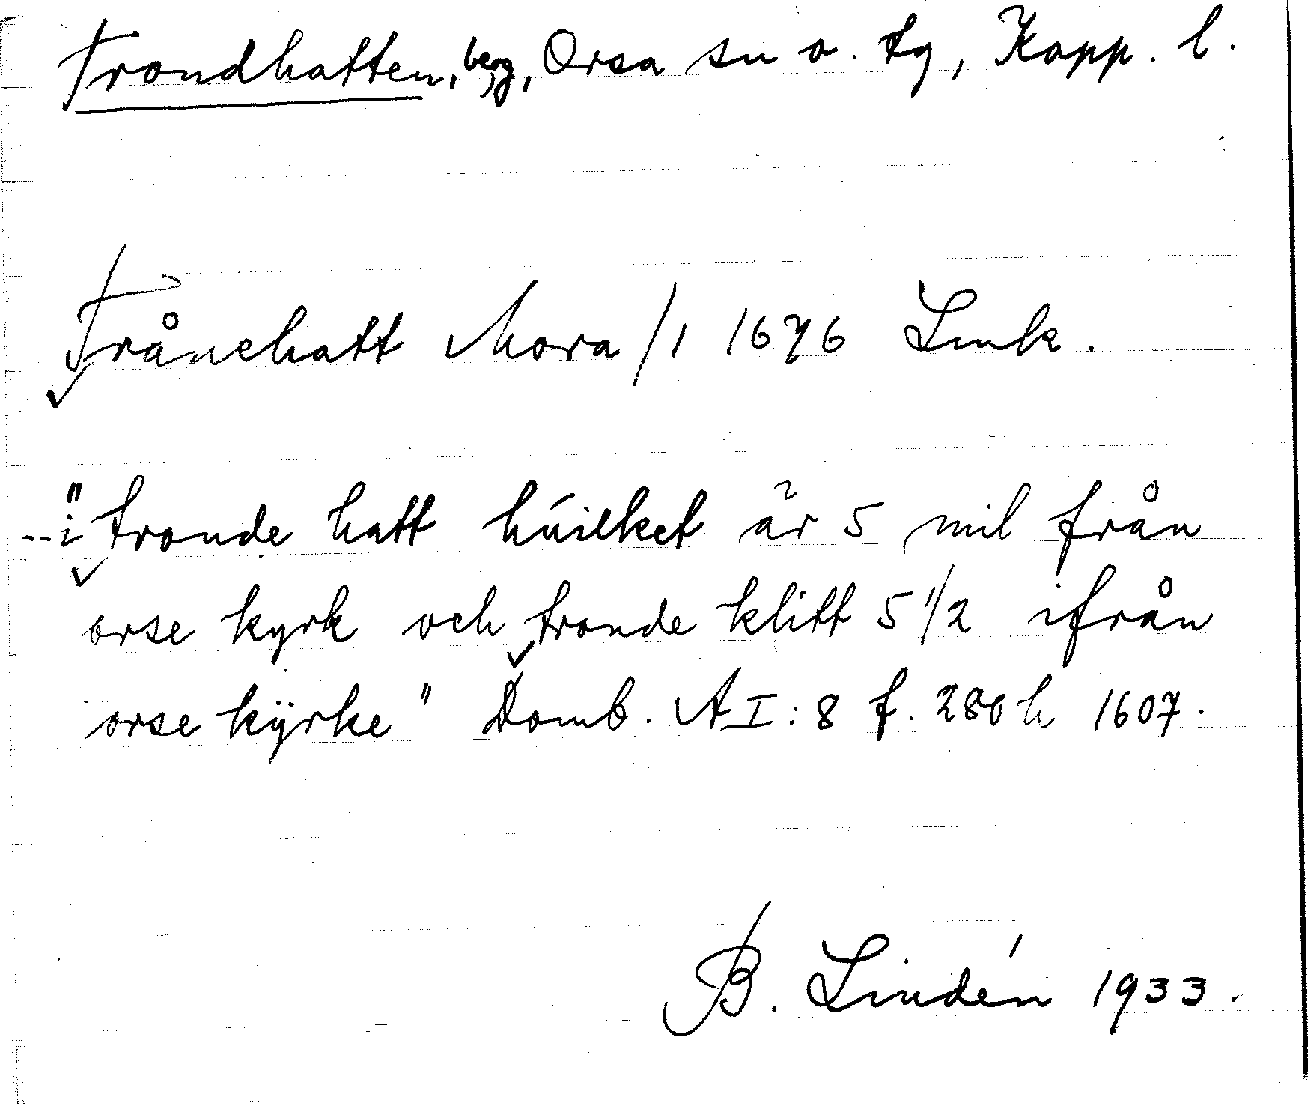 Trondhatten, berg, Orsa sn o. tg, Kopp. l.
Trånehatt Mora/1 1676 Lmk.
--"i tronde hatt húilket är 5 mil från
orse kyrk och tronde klitt 5 1/2 ifrån
orse kÿrke" Domb. AI:8 f. 280 h 1607.
B. Lindén 1933.